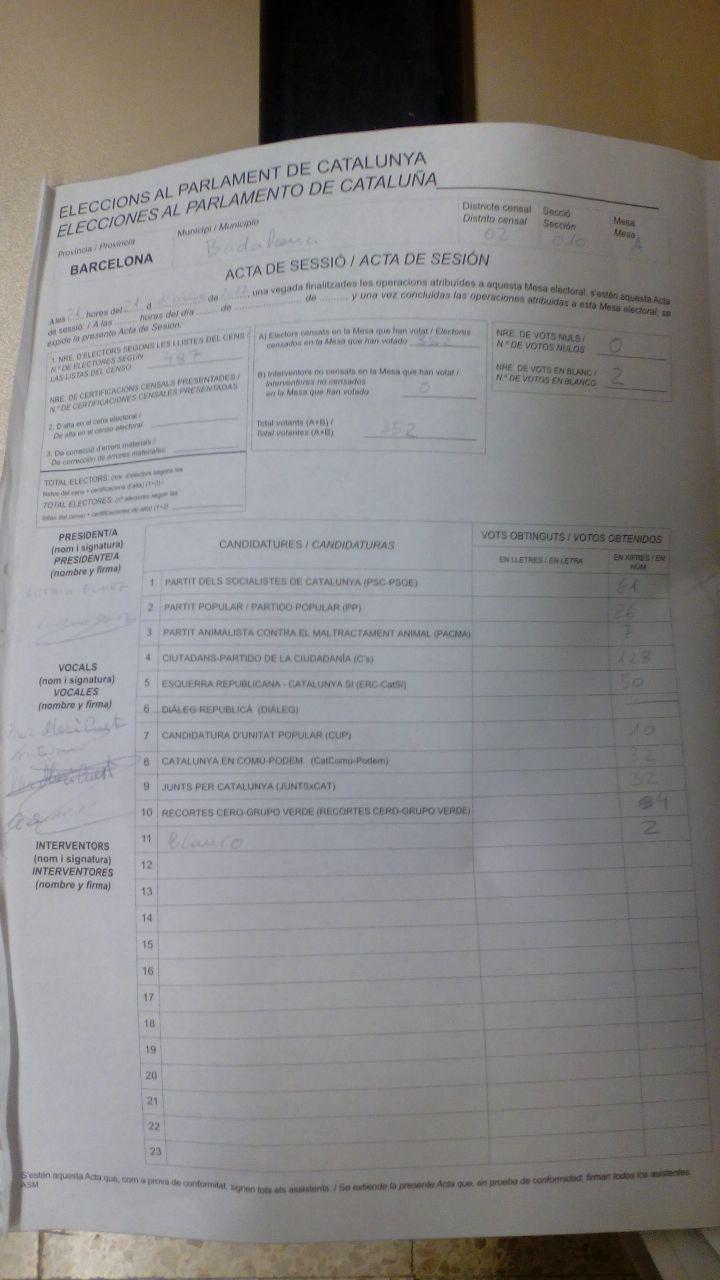 ELECCIONS AL PARLAMENT DE CATALUNYA
ELECCIONES AL PARLAMENTO DE CATALUÑA
Província / Provincia
BARCELONA
Municipi / Municipio
Badalona
Districte censal
Distrito censal
02
Secció
Sección
010
Mesa
Mesa
A
ACTA DE SESSIÓ / ACTA DE SESIÓN
A les 21 hores del 21 d de 2017, una vegada finalitzades les operacions atribuïdes a aquesta Mesa electoral, s'estén aquesta Acta
de sessió. / A las ........ horas del día ....... de ........................ de ........., y una vez concluidas las operaciones atribuidas a esta Mesa electoral, se
expide la presente Acta de Sesión.
1. NRE. D'ELECTORS SEGONS LES LLISTES DEL CENS /
N.º DE ELECTORES SEGÚN
LAS LISTAS DEL CENSO
487
NRE. DE CERTIFICACIONS CENSALS PRESENTADES /
N.º DE CERTIFICACIONES CENSALES PRESENTADAS
2. D'alta en el cens electoral /
De alta en el censo electoral:
3. De correcció d'errors materials /
De corrección de errores materiales:
TOTAL ELECTORS: (nre. d'electors segons les
llistes del cens + certificacions d'alta) (1+2) /
TOTAL ELECTORES: (nº electores según las
listas del censo + certificaciones de alta) (1+2)
A) Electors censats en la Mesa que han votat / Electores
censados en la Mesa que han votado 352
B) Interventors no censats en la Mesa que han votat /
Interventores no censados
en la Mesa que han votado 0
Total votants (A+B) /
Total votantes (A+B) 352
NRE. DE VOTS NULS /
N.º DE VOTOS NULOS 0
NRE. DE VOTS EN BLANC /
N.º DE VOTOS EN BLANCO 2
PRESIDENT/A
(nom i signatura)
PRESIDENTE/A
(nombre y firma)
VOCALS
(nom i signatura)
VOCALES
(nombre y firma)
INTERVENTORS
(nom i signatura)
INTERVENTORES
(nombre y firma)
CANDIDATURES / CANDIDATURAS
VOTS OBTINGUTS / VOTOS OBTENIDOS
EN LLETRES / EN LETRA
EN XIFRES / EN NÚM
1 PARTIT DELS SOCIALISTES DE CATALUNYA (PSC-PSOE) 61
2 PARTIT POPULAR / PARTIDO POPULAR (PP) 26
3 PARTIT ANIMALISTA CONTRA EL MALTRACTAMENT ANIMAL (PACMA) 7
4 CIUTADANS-PARTIDO DE LA CIUDADANÍA (C's) 128
5 ESQUERRA REPUBLICANA - CATALUNYA SÍ (ERC-CatSí) 50
6 DIÀLEG REPUBLICÀ (DIÀLEG) —
7 CANDIDATURA D'UNITAT POPULAR (CUP) 10
8 CATALUNYA EN COMÚ-PODEM (CatComú-Podem) 32
9 JUNTS PER CATALUNYA (JUNTSxCAT) 32
10 RECORTES CERO-GRUPO VERDE (RECORTES CERO-GRUPO VERDE) 4
11 Blanco 2
12
13
14
15
16
17
18
19
20
21
22
23
S'estén aquesta Acta que, com a prova de conformitat, signen tots els assistents. / Se extiende la presente Acta que, en prueba de conformidad, firman todos los asistentes.
ASM